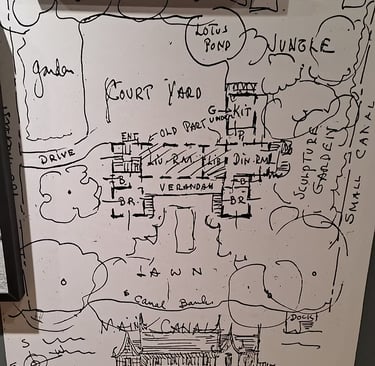 LOTUS
POND
JUNGLE
Garden
COURT YARD
KIT
G
P.
OLD PART
ENT
DRIVE
LIV RM
LIB
DIN. RM
B.
B
VERANDAH
BR.
BR
SCULPTURE
GARDEN
SMALL CANAL
LAWN
Canal Bank
MAIN CANAL
DOCK
S
W